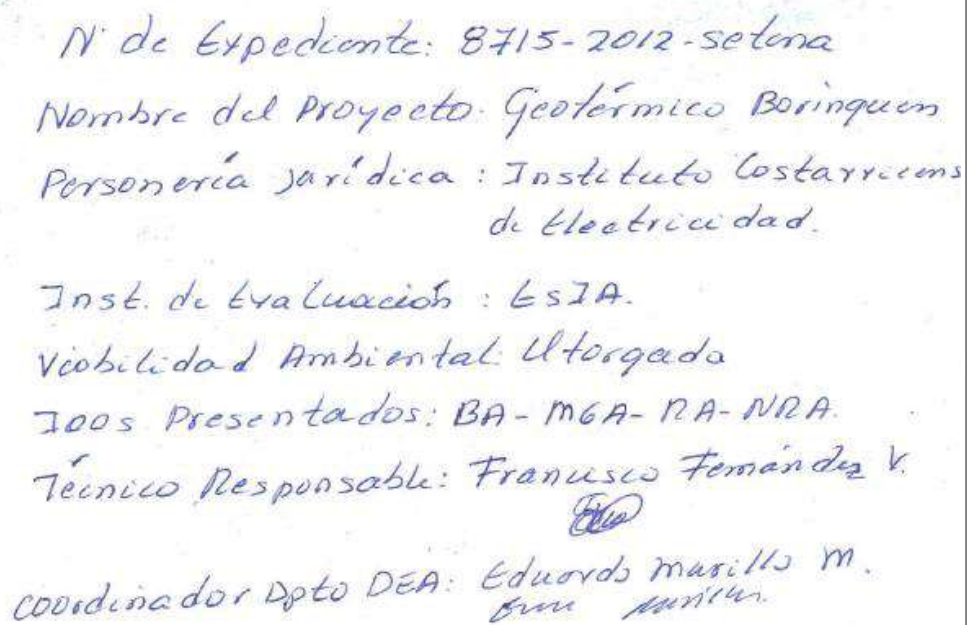 N° de Expediente: 8715-2012-setena
Nombre del Proyecto: Geotérmico Borinquen
Personería Jurídica : Instituto Costarricens
de Electricidad.
Inst. de Evaluación : EsIA.
Viabilidad Ambiental: Otorgada
IOOs Presentados: BA-MGA-RA-NRA.
Técnico Responsable: Francisco Fernández V.
Coordinador Dpto DEA: Eduardo Murillo M.